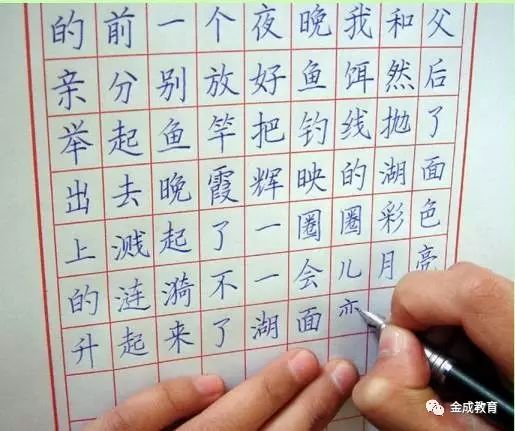 的前一个夜晚我和父
亲分别放好鱼饵然后
举起鱼竿把钓线抛了
出去晚霞辉映的湖面
上溅起了一圈圈彩色
的涟漪不一会儿月亮
升起来了湖面
金成教育